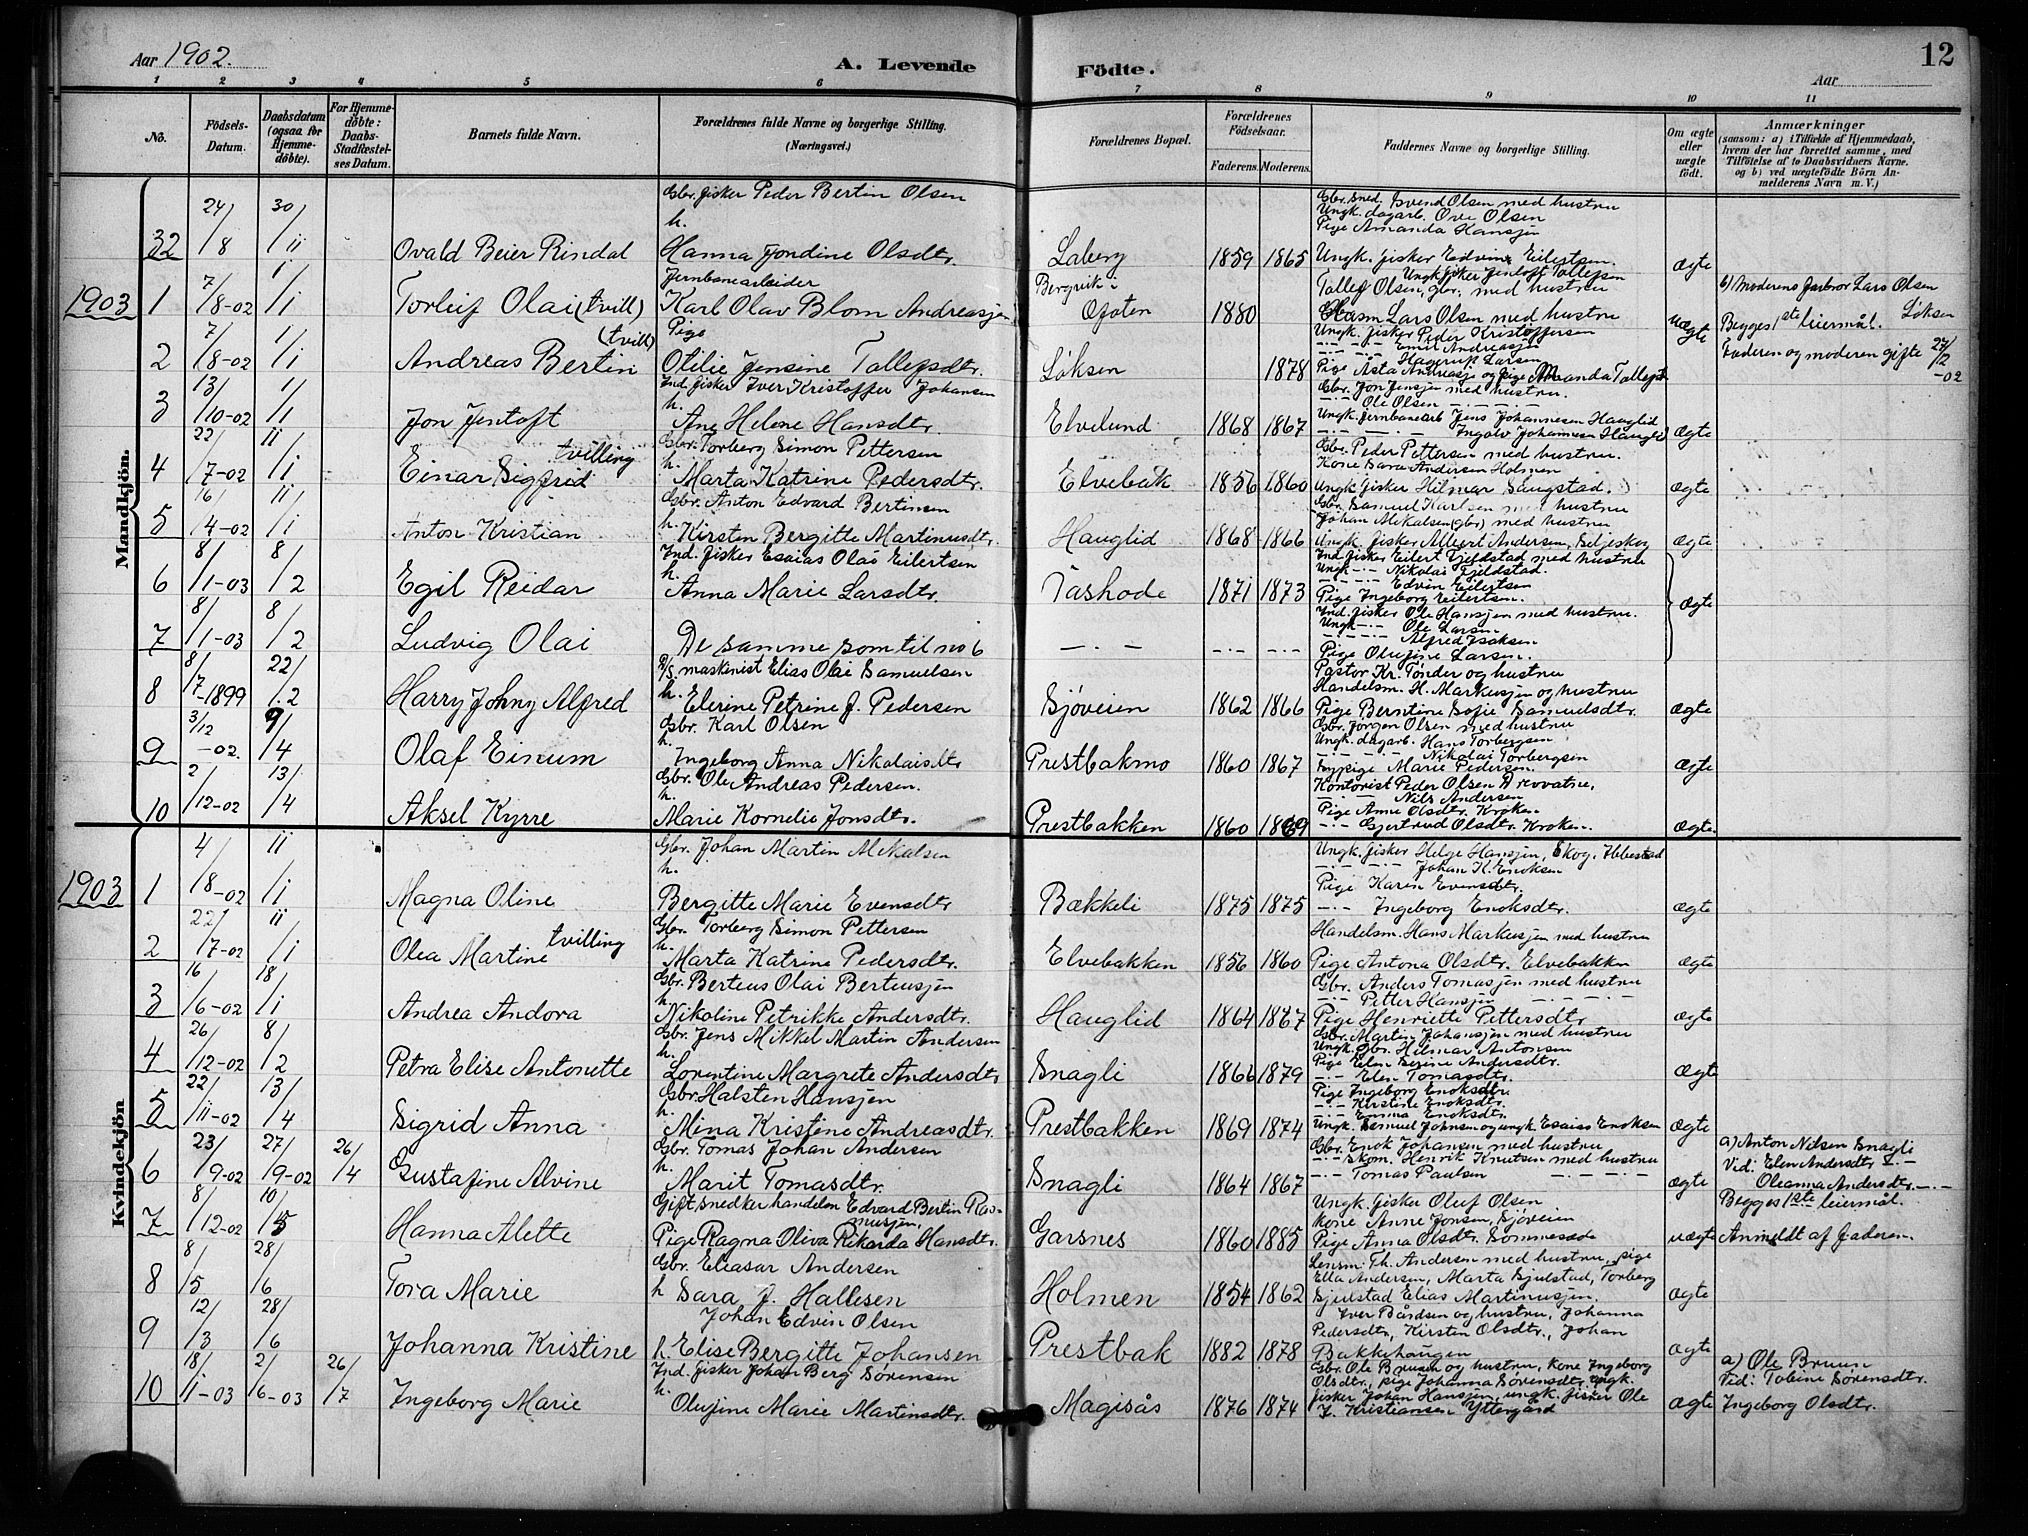 Aar 1902.
A. Levende Födte.
Aar
12
1 2 3 4 5 6 7 8 9 10 11
No.
Födsels-Datum.
Daabsdatum (ogsaa for Hjemmedøbte).
For Hjemmedøbte: Daabs-Stadfæstelses Datum.
Barnets fulde Navn.
Forældrenes fulde Navne og borgerlige Stilling. (Næringsvei.)
Forældrenes Bopæl.
Forældrenes Födselsaar.
Faderens. Moderens.
Faddernes Navne og borgerlige Stilling.
Om ægte eller uægte födt.
Anmærkninger
(saasom: a) i Tilfælde af Hjemmedaab, hvem der har forrettet samme, med Tilföielse af to Daabsvidners Navne. og b) ved uægtefödte Börn Anmelderens Navn m. V.)
Mandkjön.
32 24/8 30/11 Ovald Beier Rindal
Gbr. fisker Peder Bertin Olsen
h. Hanna Jondine Olsdtr.
Laberg 1859 1865
Gbr. sned. Svend Olsen med hustru
Ungk. dagarb. Ove Olsen
Pige Amanda Hansjen
Ungk. fisker Edvin Eilertsen.
Ægte
1903 1 7/8-02 1/1 Torleif Olai (tvill)
Jernbanearbeider
Karl Olav Blom Andreasjen
Bergvik
Ofoten 1880
Ungk. fisker Jentoft Tollefsen
Tollef Olsen, gbr. med hustru
Husm Lars Olsen med hustru
uægte
b) Moderens farbror Lars Olsen Løksen
Begges 1ste leiermål.
2 7/8-02 1/1 Andreas Bertin (tvill)
Pige
Otilie Jensine Tollefsdtr.
Løksen 1878
Ungk. fisker Peder Kristoffersen
-·- -·- Emil Andreasjen
-·- Hagerup Larsen
Pige Asta Andreasje og pige Amanda Tollefsd
Faderen og moderen gifte 27/12-02
3 13/10-02 1/1 Jon Jentoft
Ind. fisker Iver Kristoffer Johansen
h. Ane Helene Hansdtr.
Elvelund 1868 1867
Gbr. Jon Jensjen med hustru.
-·- Ole Olsen -·-·-
Ungk. jernbanearb Jens Johannesen Hauglid
-·- -·- Ingolv Johannesen Hauglid
Ægte
4 22/7-02 11/1 Einar Sigfrid tvilling
Gbr. Torberg Simon Pettersen
h. Marta Katrine Pedersdtr.
Elvebak 1856 1860
Gbr. Peder Pettersen med hustru.
Kone Sara Andersen Holmen
Ungk. fisker Hilmar Saugstad.
Ægte
5 16/4-02 11/1 Anton Kristian
Gbr. Anton Edvard Bertinsen
h. Kirsten Bergitte Martinusdtr.
Hauglid 1868 1866
Gbr. Samuel Karlsen med hustru
Johan Mikalsen (gbr) med hustru
Ungk. fisker Albert Andersen, Seljeskog
Ægte
6 8/1-03 8/2 Egil Reidar
Ind. fisker Esaias Olai Eilertsen
h. Anna Marie Larsdtr.
Tashode 1871 1873
Ind. fisker Eilert Fjeldstad med hustru
Ungk -·- Nikolai Fjeldstad.
-·- -·- Edvin Eilertsen
Pige Ingeborg Eilertsen.
Ægte
7 8/1-03 8/2 Ludvig Olai
De samme som til no 6
-·- -·- -·-
Ind. fisker Ole Hansjen med hustru.
Ungk -·- Ole Larsen
-·- -·- Alfred Isaksen
Pige Olufine Larsen.
8 8/7-1899 22/2 Harry Johny Alfred
D/S. maskenist Elias Olai Samuelsen
h. Elerine Petrine J. Pedersen
Sjøveien 1862 1866
Pastor Kr. Tønder og hustru
Handelsm. H. Markusjen og hustru
Pige Berntine Sofie Samuelsdtr.
Ægte
9 3/12-02. 9/4 Olaf Einum
Gbr. Karl Olsen
h. Ingeborg Anna Nikolaisdtr
Prestbakmo 1860 1867
Gbr. Jørgen Olsen med hustru
Ungk. dagarb. Hans Torbergsen
-·- -·- Nikolai Torbergsen
Pige Marie Pedersen.
Ægte
10 2/12-02 13/4 Aksel Kyrre
Gbr. Ole Andreas Pedersen.
h. Marie Kornelie Jonsdtr.
Prestbakken 1860 1869
Kontorist Peder Olsen Drovatne,
-·- Nils Andersen
Pige Anne Olsdtr. Kroken
-·- Gjertrud Olsdtr. Kroken.
Ægte.
Kvindekjön
1903 1 4/8-02 11/1 Magna Oline
Gbr. Johan Martin Mikalsen
h. Bergitte Marie Evensdtr
Bækkeli 1875 1875
Ungk. fisker Helge Hansjen, Skog. Ibbestad
-·- -·- Johan K. Enoksen
Pige Karen Evensdtr.
-·- Ingeborg Enoksdtr.
Ægte
2 22/7-02 11/1 Olea Martine tvilling
Gbr. Torberg Simon Pettersen
h. Marta Katrine Pedersdtr.
Elvebakken 1856 1860
Handelsm. Hans Markusjen med hustru
Pige Antona Olsdtr. Elvebakken
Ægte
3 16/6-02 18/1 Andrea Andora
Gbr. Berteus Olai Berteusjen
h. Nikoline Petrikke Andersdtr.
Hauglid 1864 1867
Gbr. Anders Tomasjen med hustru
-·- Petter Hansjen -·-·-
Pige Henriette Pettersdtr
Ægte
4 26/12-02 8/2 Petra Elise Antonette
Gbr. Jens Mikkel Martin Andersen
h. Lorentine Margrete Andersdtr
Snagli 1866 1879
Gbr. Martin Johansjen med hustru
Ungk. gbr. Hilmar Antonsen
Pige Elen Andersdtr.
-·- Elen Tomasdtr.
Ægte
5 22/11-02 13/4 Sigrid Anna
Gbr. Halsten Hansjen
h. Mina Kristine Andreasdtr.
Prestbakken 1869 1874
Pige Ingeborg Enoksdtr
-·- Kirstine Enoksdtr.
-·- Emma Enoksdtr.
Ungk. Samuel Johnsen og ungk. Esaias Enoksen
Ægte
6 23/9-02 27/9-02 26/4 Gustafine Alvine
Gbr. Tomas Johan Andersen
h. Marit Tomasdtr.
Snagli 1864 1867
Gbr. Enok Johansen med hustru
-·- skom. Henrik Knutsen med hustru
-·- Tomas Paulsen -·-·-
Ægte
a) Anton Nilsen Snagli
Vid: Elen Andersdtr -·-
Oleanna Andersdtr. -·-
7 8/12-02 10/5 Hanna Alette
Gift snedkerhandelsm Edvard Bertin Rasmusjen,
Pige Ragna Oliva Rikarda Hansdtr.
Garsnes 1860 1885
Ungk. fisker Oluf Olsen
Kone Anne Jonsen, Sjøveien
Pige Anna Olsdtr. Sommesæde
uægte
Begges 1ste leiermål.
Anmeldt af faderen.
8 8/5 28/6 Tora Marie
Gbr. Eliasar Andersen
h Sara J. Hallesen
Holmen 1854 1862
Lensm. Th. Andersen med hustru, pige
Ella Andersen, Marta Gjulstad, Torberg
Gjulstad Elias Martinusjen.
Ægte
9 12/3 28/6 Johanna Kristine
Johan Edvin Olsen
h. Elise Bergitte Johansen
Prestbak 1882 1878
Iver Bårdsen og hustru, Johanna
Pedersdtr, Kirsten Olsdtr., Johan
Bakkehaugen
Ægte
10 18/11-03 2/6-03 26/7 Ingeborg Marie
Ind. fisker Johan Berg Sørensen
h. Olufine Marie Martinsdtr.
Magisås 1876 1874
Gbr. Ole Bruun og hustru, kone Ingeborg
Olsdtr., pige Johanna Sørensdtr. ungk.
fisker Johan Hansjen, ungk. fisker Ole
J. Kristiansen Yttergård
Ægte
a) Ole Bruun
Vid: Tobine Sørensdtr.
Ingeborg Olsdtr.